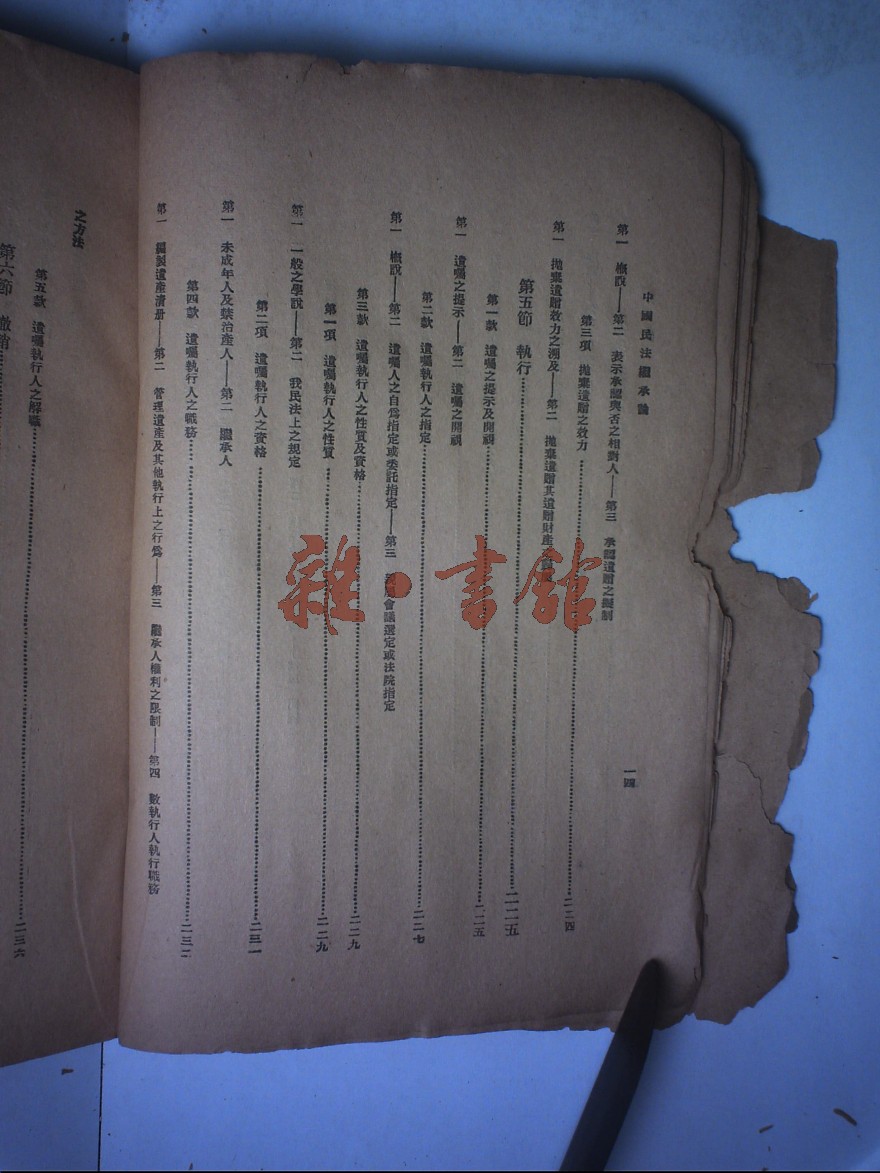 中國民法繼承論
一四
第一 概說——第二 表示承認與否之相對人——第三 承認遺贈之擬制
第三項 拋棄遺贈之效力……二二四
第一 拋棄遺贈效力之溯及——第二 拋棄遺贈其遺贈財產
第五節 執行……二二五
第一款 遺囑之提示及開視……二二五
第一 遺囑之提示——第二 遺囑之開視
第二款 遺囑執行人之指定……二二七
第一 概說——第二 遺囑人之自爲指定或委託指定——第三 親屬會議選定或法院指定
第三款 遺囑執行人之性質及資格……二二九
第一項 遺囑執行人之性質……二二九
第一 一般之學說——第二 我民法上之規定
第二項 遺囑執行人之資格……二三一
第一 未成年人及禁治產人——第二 繼承人
第四款 遺囑執行人之職務……二三二
第一 編製遺產清册——第二 管理遺產及其他執行上之行爲——第三 繼承人權利之限制——第四 數執行人執行職務
之方法
第五款 遺囑執行人之解職……二三六
第六節 撤銷
雜·書館